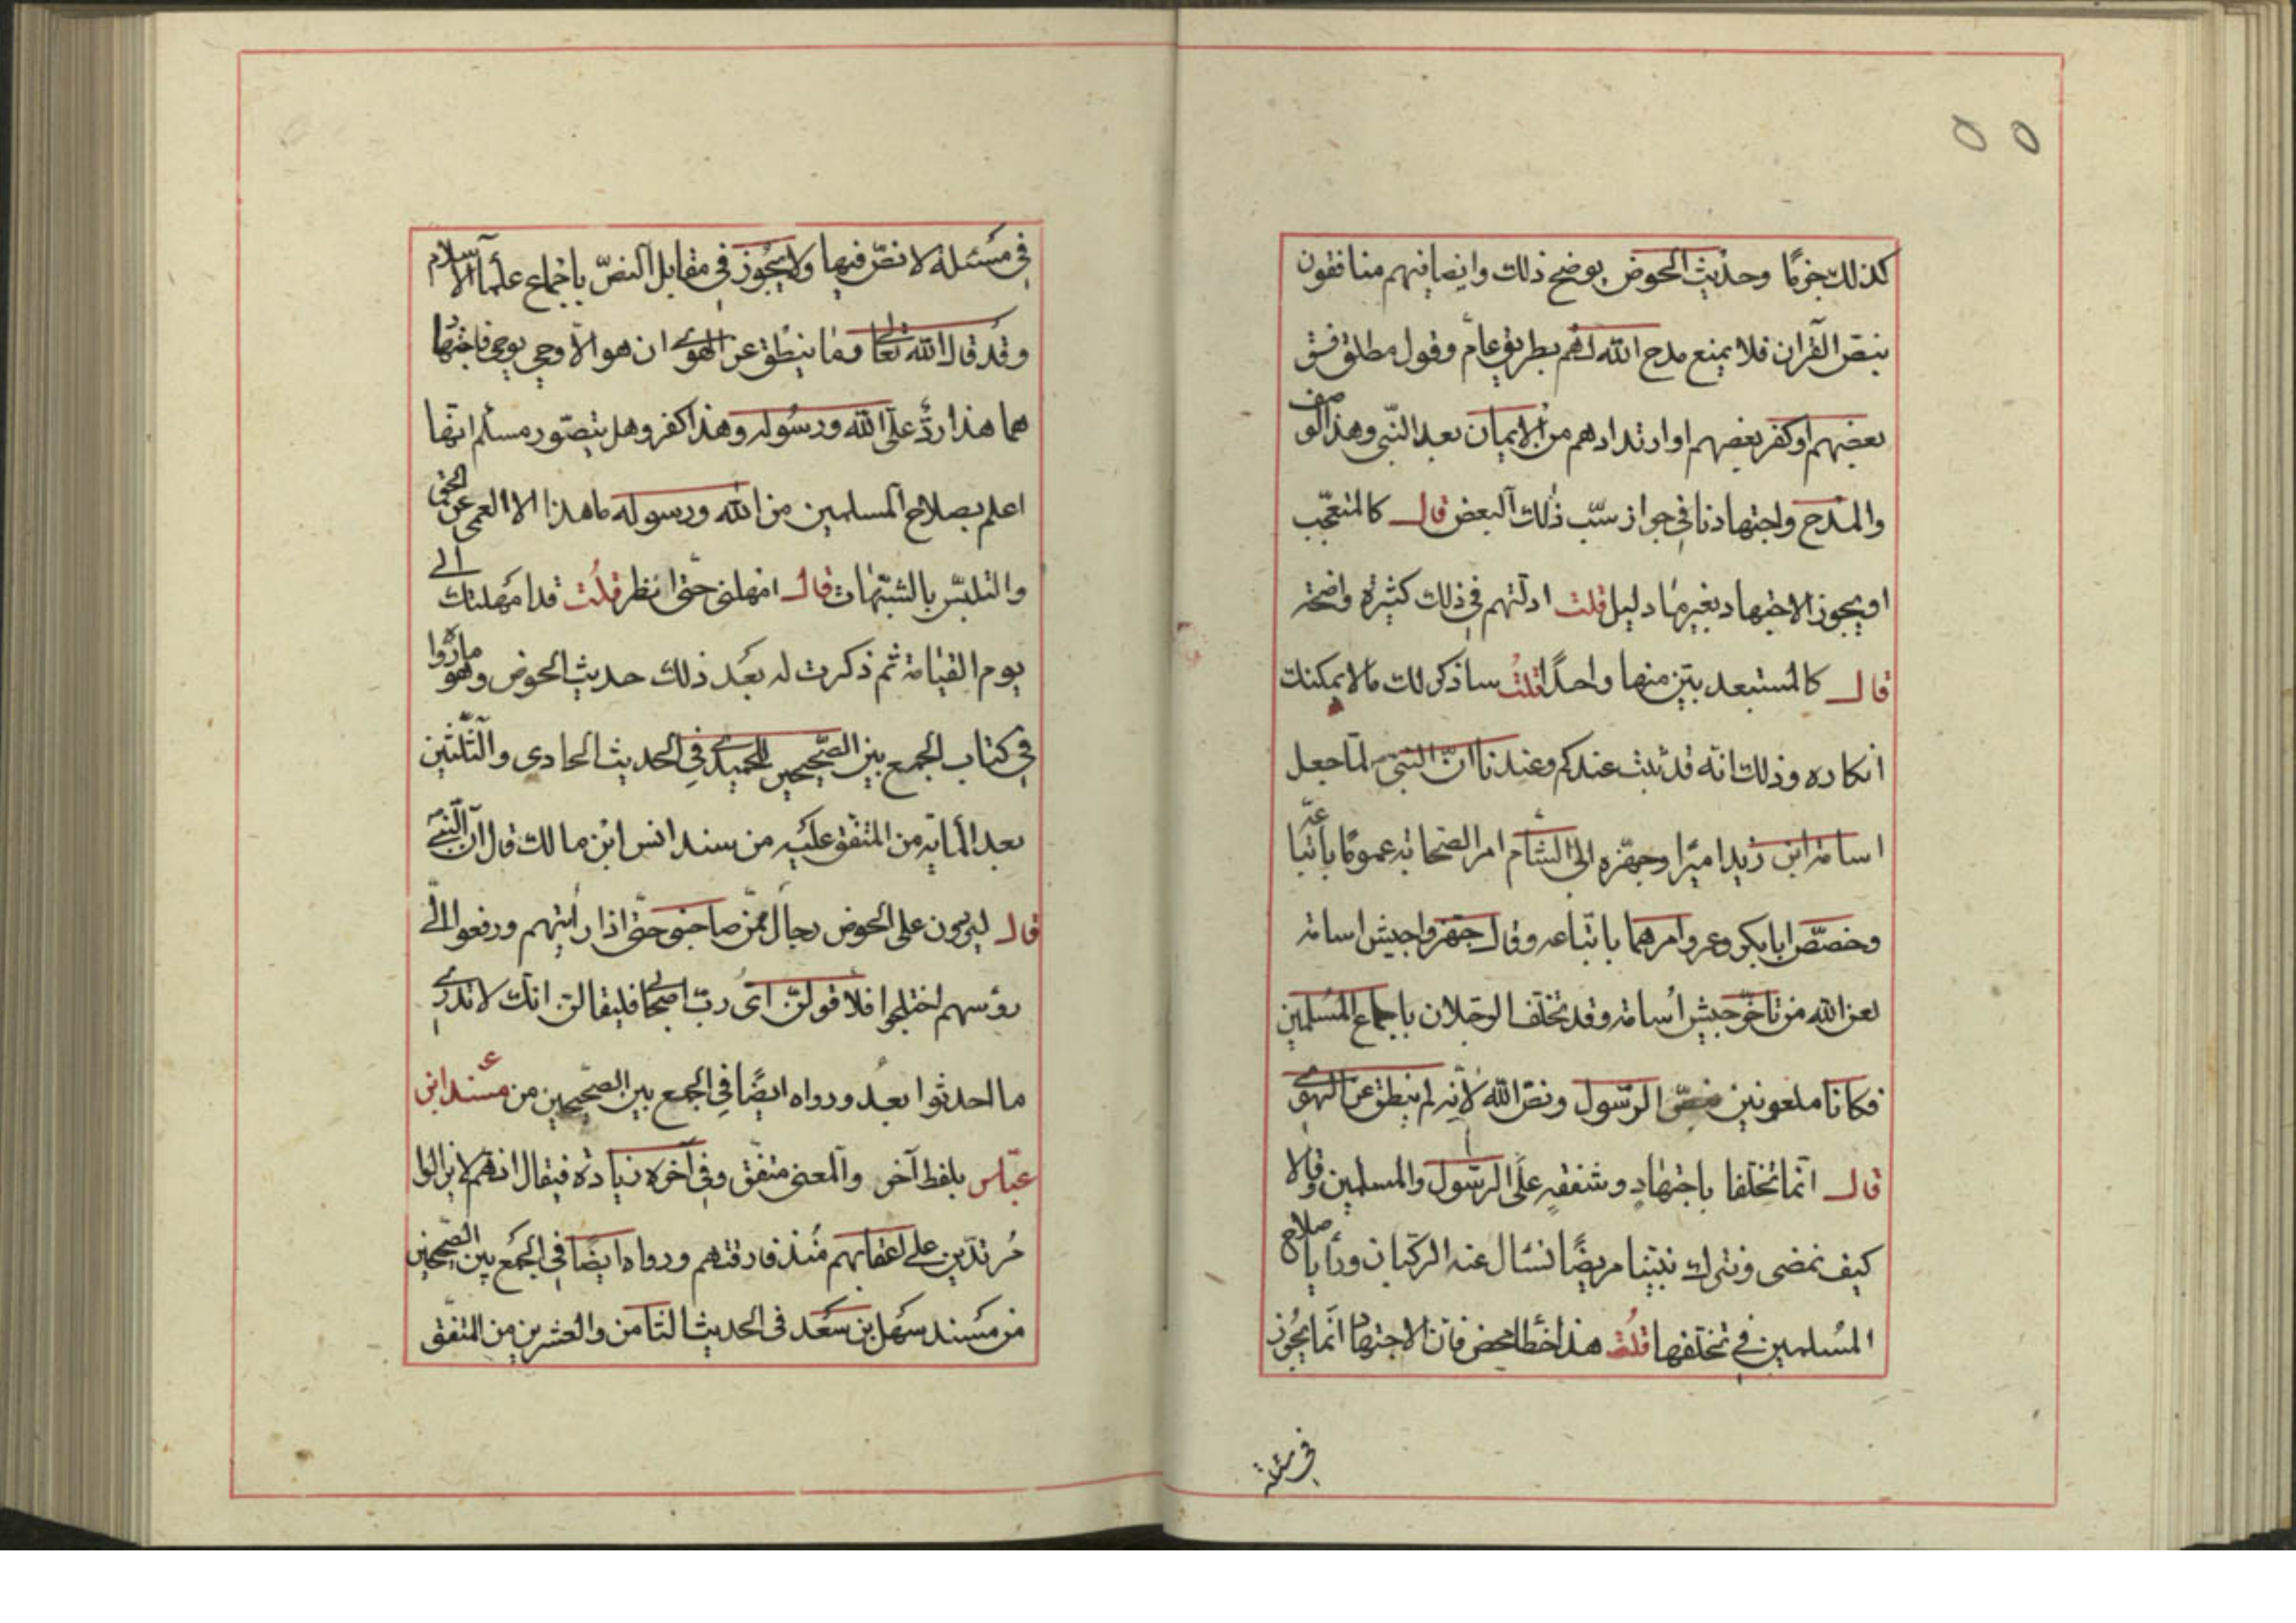 ٥ ٥
كذلك جزمًا وحديث الحوض يوضح ذلك وايضا فانهم منافقون
بنصّ القرآن فلا يمنع مدح الله لهم بطريق عامّ وقول مطلق فسق
بعضهم او كفر بعضهم او ارتدادهم من الايمان بعد النّبى وهذا الوصف
والمدح واجتهادنا في جواز سبّ ذلك البعض قال كالمتعجّب
او يجوز الاجتهاد بغير ما دليل قلت ادلّتهم في ذلك كثيرة واضحة
قال كالمستبعد بيّن منها واحدًا قلت ساذكر لك ما لا يمكنك
انكاره وذلك انّه قد ثبت عندكم وعندنا انّ النبى ص لمّا جعل
اسامة ابن زيد اميرًا وجهّزه الى الشأم امر الصّحابة عمومًا باتّباعه
وخصّص ابا بكر وعمر وامرهما باتّباعه وقال جهّزوا جيش اسامة
لعن الله من تأخّر جيش أسامة وقد تخلّف الرجلان باجماع المسلمين
فكانا ملعونين بنصّ الرّسول ونصّ الله لانّه لم ينطق عن الهوى
قال انّما تخلّفا باجتهادٍ وشفقةٍ على الرّسول والمسلمين وقالا
كيف نمضى ونترك نبيّنا مريضًا نسأل عنه الركبان ورأيا صلاح
المُسلمين في تخلّفهما قلت هذا خطأ محض فانّ الاجتهاد انّما يجُوز
في مسئلة
في مسُئلة لا نصّ فيها ولا يجُوز في مقابل النصّ باجماع علمآء الاسلام
وقد قال الله تعالى وما ينطق عن الهوى ان هو الّا وحي يوحى فاجتهاد
هما هذا ردّ على الله ورسُوله وهذا كفر وهل يتصّور مسلم انهّما
اعلم بصلاح المسلمين من الله ورسوله ما هذا الا العمى عن الحق
والتلبّس بالشّبهات قال امهلنى حتّى انظر قلت قد امهلتك الى
يوم القيامة ثم ذكرت له بعد ذلك حديث الحوض وهو ما رووا
في كتاب الجمع بين الصّحيحين للحميدى في الحديث الحادى والثّلثين
بعد المأية من المتّفق عليه من سند انس ابن مالك قال انّ النّبىّ
قال ليردون على الحوض رجال ممّن صاحبنى حتّى اذا رأيتهم ورفعوا الىّ
رؤسهم اختلجوا فلأقولنّ اى ربّ اصحابى فليقالنّ انّك لا تدرى
ما احدثوا بعد ورواه ايضًا في الجمع بين الصّحيحين من مسند ابن
عبّاس بلفظ آخر والمعنى متفّق وفي آخره زيادة فيقال انهّم لا يزالوا
مُرتدّين على اعقابهم مُنذ فارقتهم ورواه ايضًا في الجمع بين الصّحيحين
من مسند سهل بن سعد في الحديث الثامن والعشرين من المتفّق